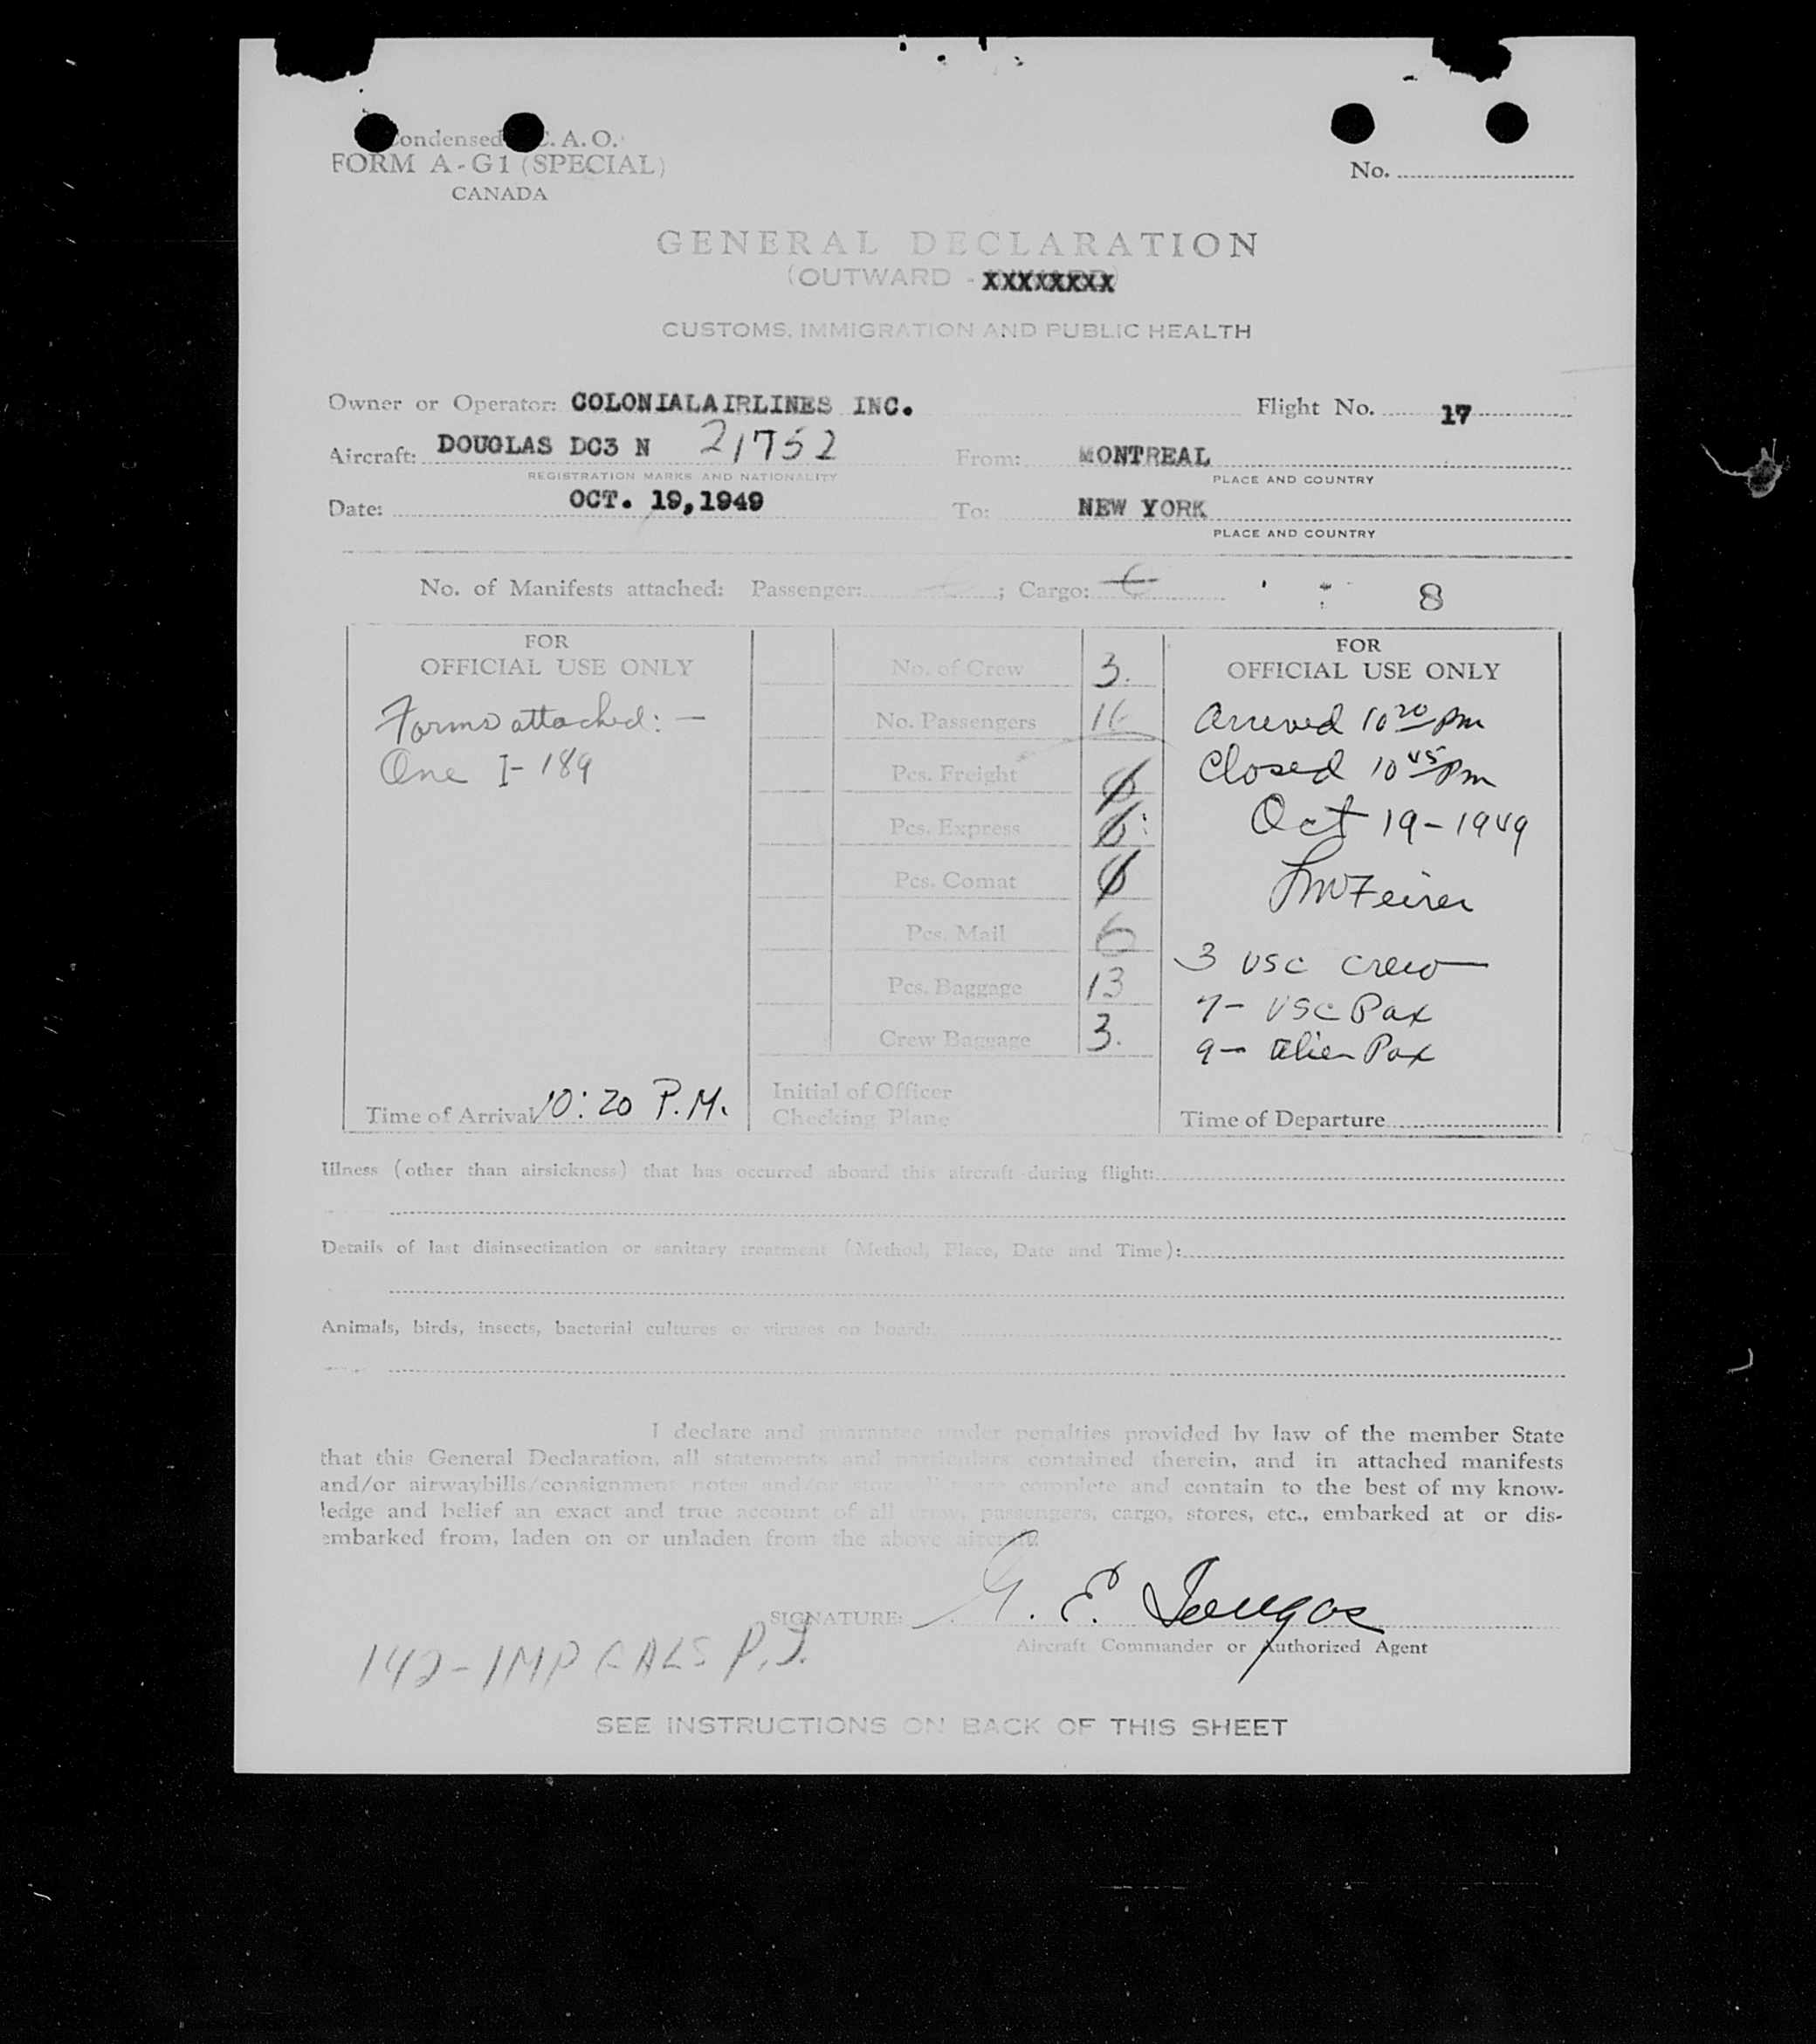 Condensed I.C.A.O.
FORM A-G1 (SPECIAL)
CANADA
No.
GENERAL DECLARATION
(OUTWARD - XXXXXXXX
CUSTOMS, IMMIGRATION AND PUBLIC HEALTH
Owner or Operator: COLONIALAIRLINES INC. Flight No. 17
Aircraft: DOUGLAS DC3 N 21752 From: MONTREAL
REGISTRATION MARKS AND NATIONALITY PLACE AND COUNTRY
Date: OCT. 19,1949 To: NEW YORK
PLACE AND COUNTRY
No. of Manifests attached: Passenger: ; Cargo: 8
FOR
OFFICIAL USE ONLY
Forms attached: —
One I-189
Time of Arrival 10:20 P.M.
No. of Crew 3.
No. Passengers 16
Pcs. Freight
Pcs. Express
Pcs. Comat
Pcs. Mail 6
Pcs. Baggage 13
Crew Baggage 3.
Initial of Officer
Checking Plane
FOR
OFFICIAL USE ONLY
Arrived 10 20 pm
Closed 10 45 pm
Oct 19-1949
3 USC Crew
7- USC Pax
9- Alien Pax
Time of Departure
Illness (other than airsickness) that has occurred aboard this aircraft during flight:
Details of last disinsectization or sanitary treatment (Method, Place, Date and Time):
Animals, birds, insects, bacterial cultures or viruses on board:
I declare and guarantee under penalties provided by law of the member State
that this General Declaration, all statements and particulars contained therein, and in attached manifests
and/or airwaybills/consignment notes and/or stores list are complete and contain to the best of my know-
ledge and belief an exact and true account of all crew, passengers, cargo, stores, etc., embarked at or dis-
embarked from, laden on or unladen from the above aircraft.
SIGNATURE: G. E.
Aircraft Commander or Authorized Agent
142-IMP GALS P.J.
SEE INSTRUCTIONS ON BACK OF THIS SHEET